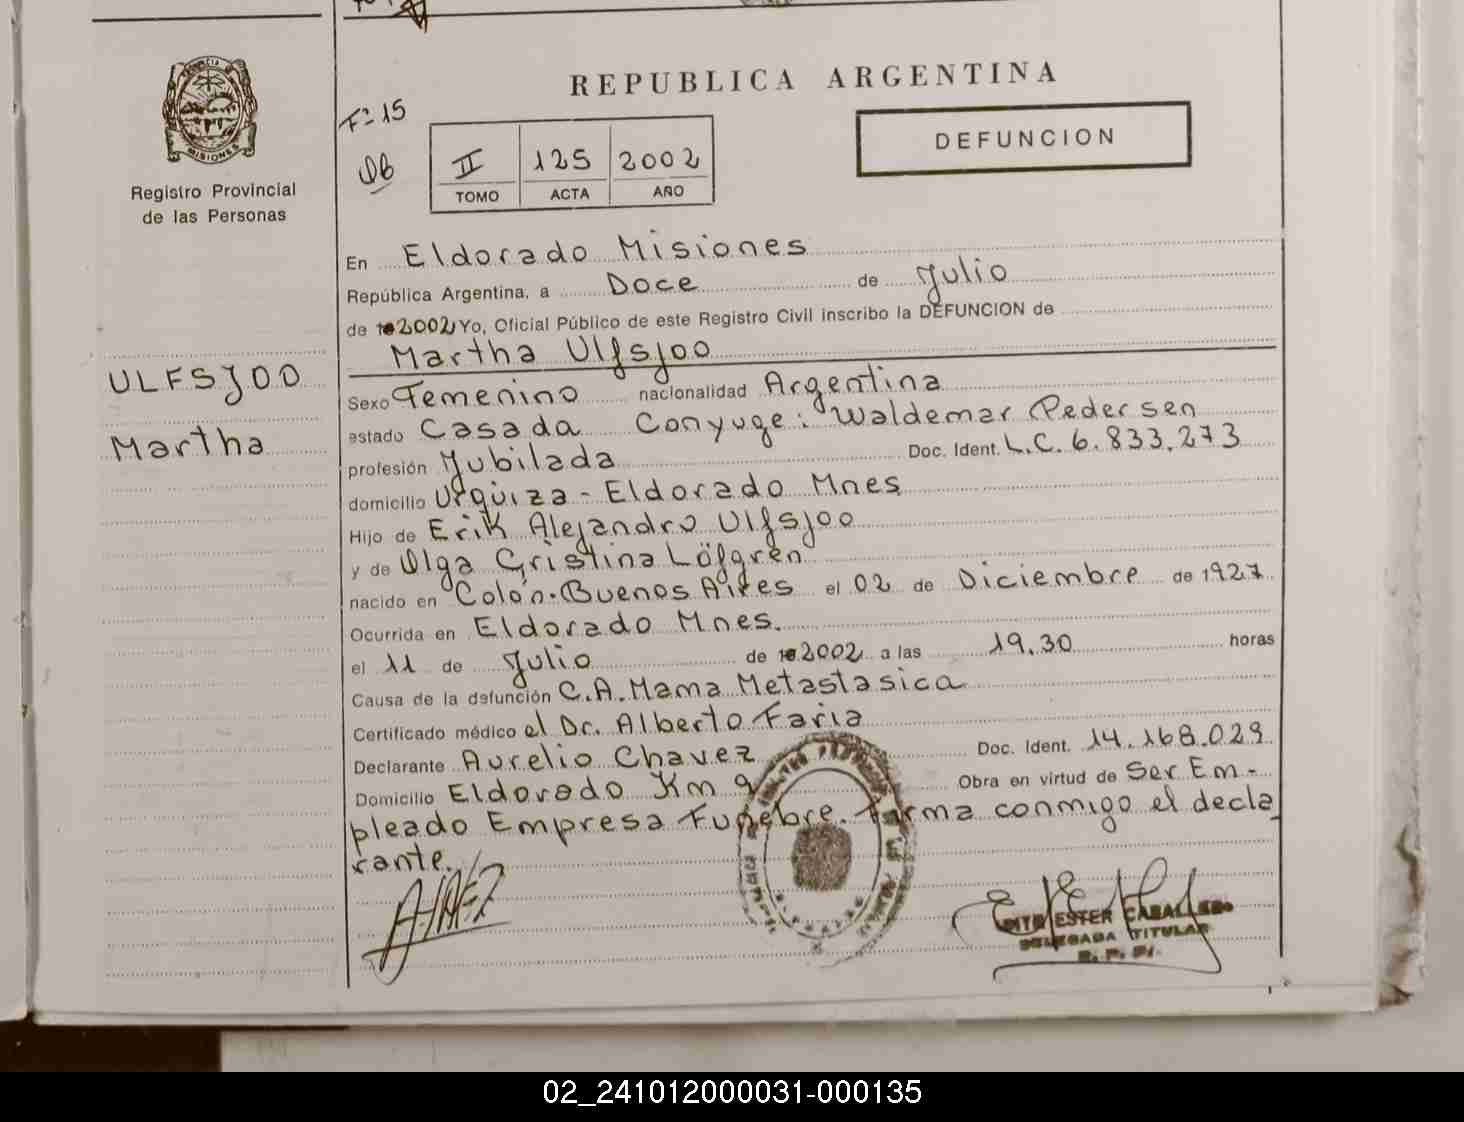 REPUBLICA ARGENTINA
PROVINCIA DE
MISIONES
Registro Provincial
de las Personas
Fº 15
II 125 2002
TOMO ACTA AÑO
DEFUNCION
En Eldorado Misiones
República Argentina, a Doce de Julio
de 2002 Yo, Oficial Público de este Registro Civil inscribo la DEFUNCION de
Martha Ulfsjoo
ULFSJOO
Martha
Sexo Femenino nacionalidad Argentina
estado Casada Conyuge: Waldemar Pedersen
profesión Jubilada Doc. Ident. L.C. 6.833.273
domicilio Urqüiza - Eldorado Mnes
Hijo de Erik Alejandro Ulfsjoo
y de Olga Cristina Löfgren
nacido en Colón. Buenos Aires el 02 de Diciembre de 1927
Ocurrida en Eldorado Mnes.
el 11 de Julio de 2002 a las 19.30 horas
Causa de la defunción C.A. Mama Metastasica
Certificado médico el Dr. Alberto Faria
Declarante Aurelio Chavez Doc. Ident. 14.168.029
Domicilio Eldorado Km 9 Obra en virtud de Ser Em-
pleado Empresa Funebre. Firma conmigo el decla
rante.
ESTER CABALLERO
DELEGADA TITULAR
R. P. P.
02_241012000031-000135